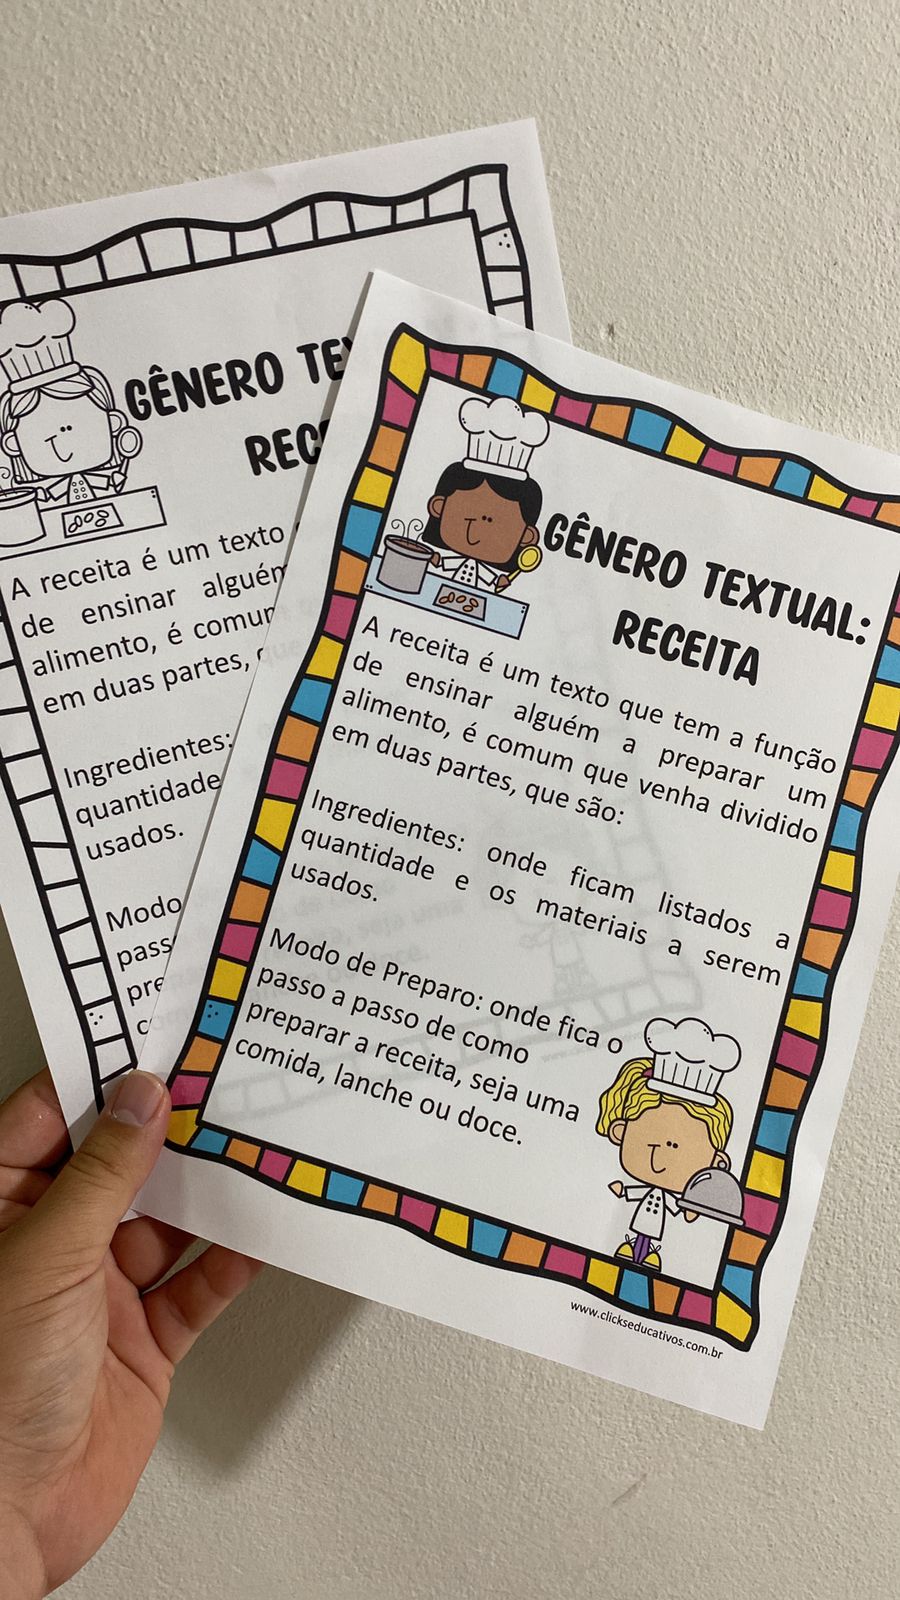 GÊNERO
RECE
A receita é um texto
de ensinar alguém
alimento, é comum
em duas partes,
Ingredientes:
quantidade
usados.
Modo
GÊNERO TEXTUAL:
RECEITA
A receita é um texto que tem a função
de ensinar alguém a preparar um
alimento, é comum que venha dividido
em duas partes, que são:
Ingredientes: onde ficam listados a
quantidade e os materiais a serem
usados.
Modo de Preparo: onde fica o
passo a passo de como
preparar a receita, seja uma
comida, lanche ou doce.
www.clickseducativos.com.br